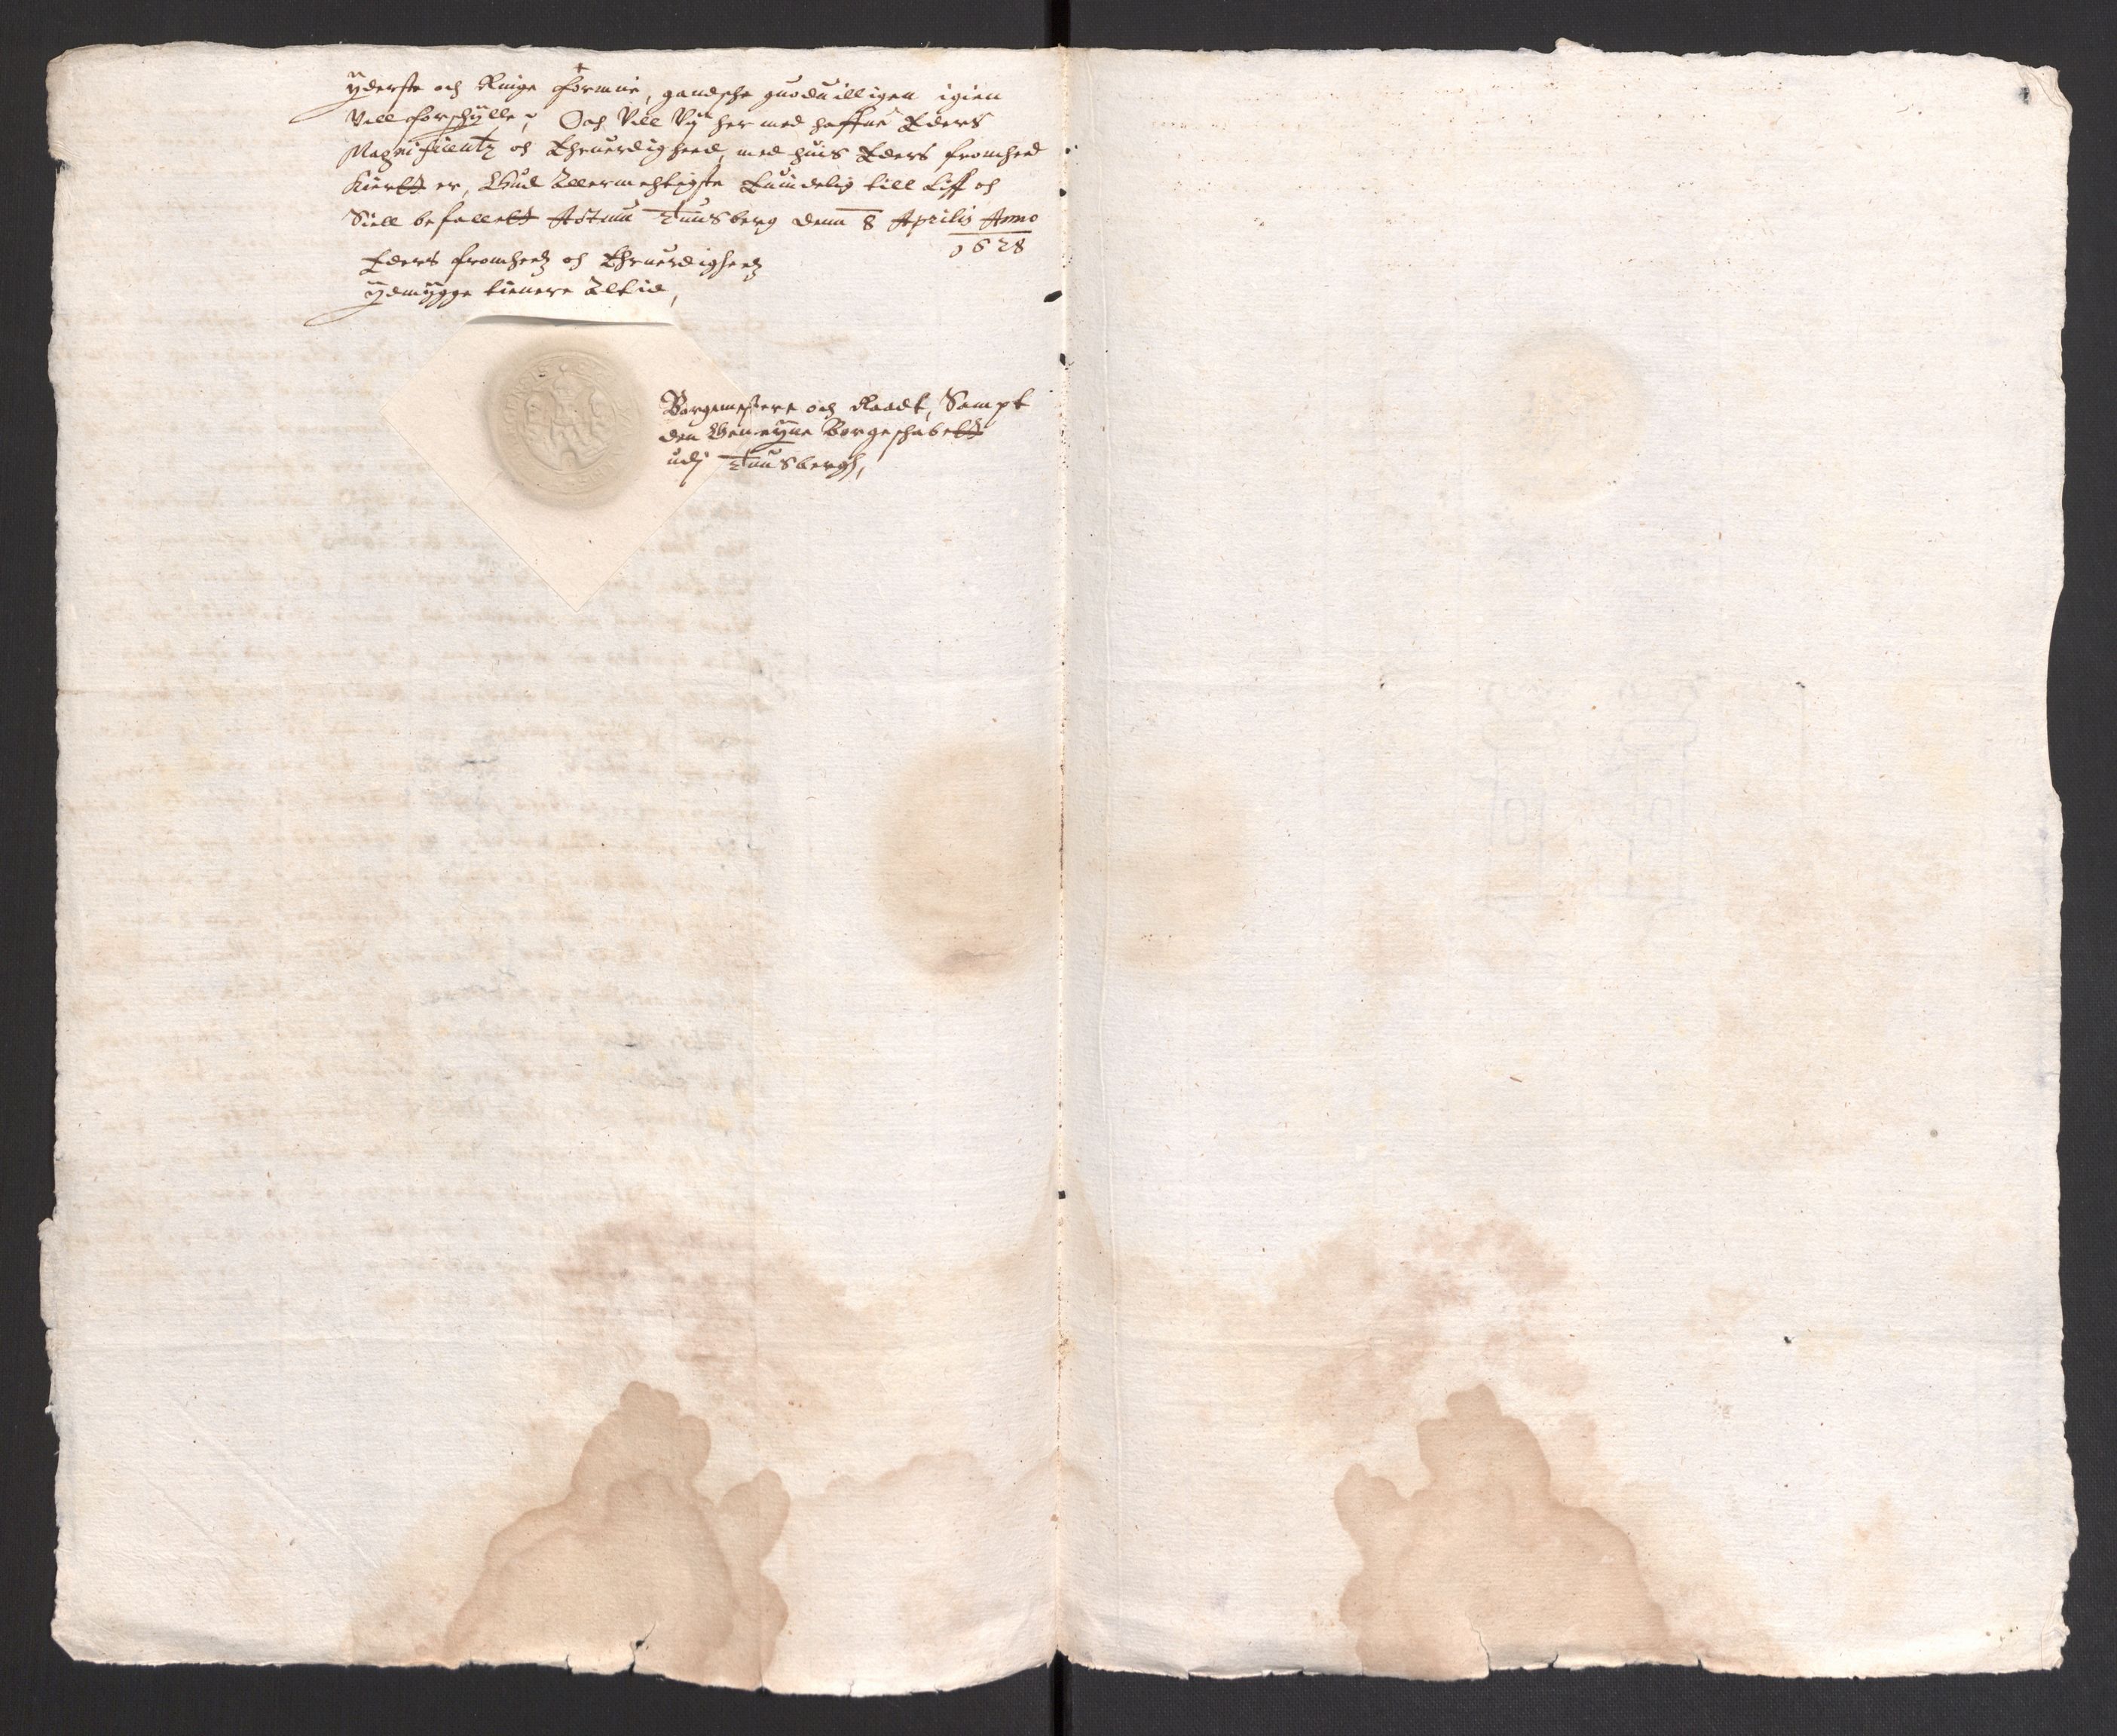 yderste och Ringe formue, gandsche guoduilligen igien
Vill forschylle, Och Vill Vy her med haffue Eders
Magnificentz och Ehruerdigheed, med huis Eders fromhed
Kiertt er, Gud Allermechtigste Euindelig till Liff och
Siell befallett Actum Tunsberg denn 8 Aprilis Anno
1628
Eders fromheedz och Ehruerdigheedz
ydmygge tienere Altid,
Borgemestere och Raadt, Sampt
den Gemeyne Borgeschabett
udj Tunsbergh,